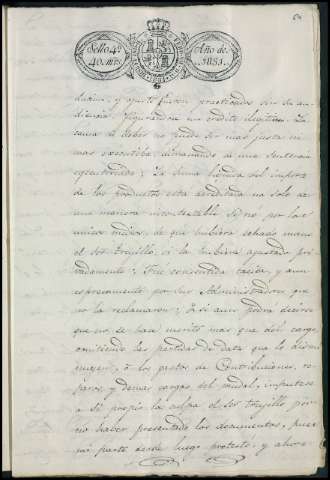 Sello 4º
40 mrs.
Año de
1831.
ducion, y quarto fueron practicados sin su au
diencia figurandola un credito ilegitimo. La
causa de deber no puede ser mas justa ni
mas executiba, dimanando de una Sentencia
egecutoriada: La suma liquida del importe
de los productos esta acreditada no solo de
una manera incontestable sino por los
unicos medios, de que hubiera echado mano
el Sor Trujillo, si la hubiera ajustado pri
vadamente: Fue consentida tacita, y aun
espresamente por sus Administradores que
no la reclamaron: Y si aun podra decirse
que no se hace merito mas que del cargo
omitiendo las partidas de data que lo dismi
nuyen, ó los gastos de Contribuciones, re
paros, y demas cargas del caudal, imputese
a si propio la culpa el Sor Trujillo por
no haber presentado los documentos, pues
mi parte desde luego protestó, y ahora